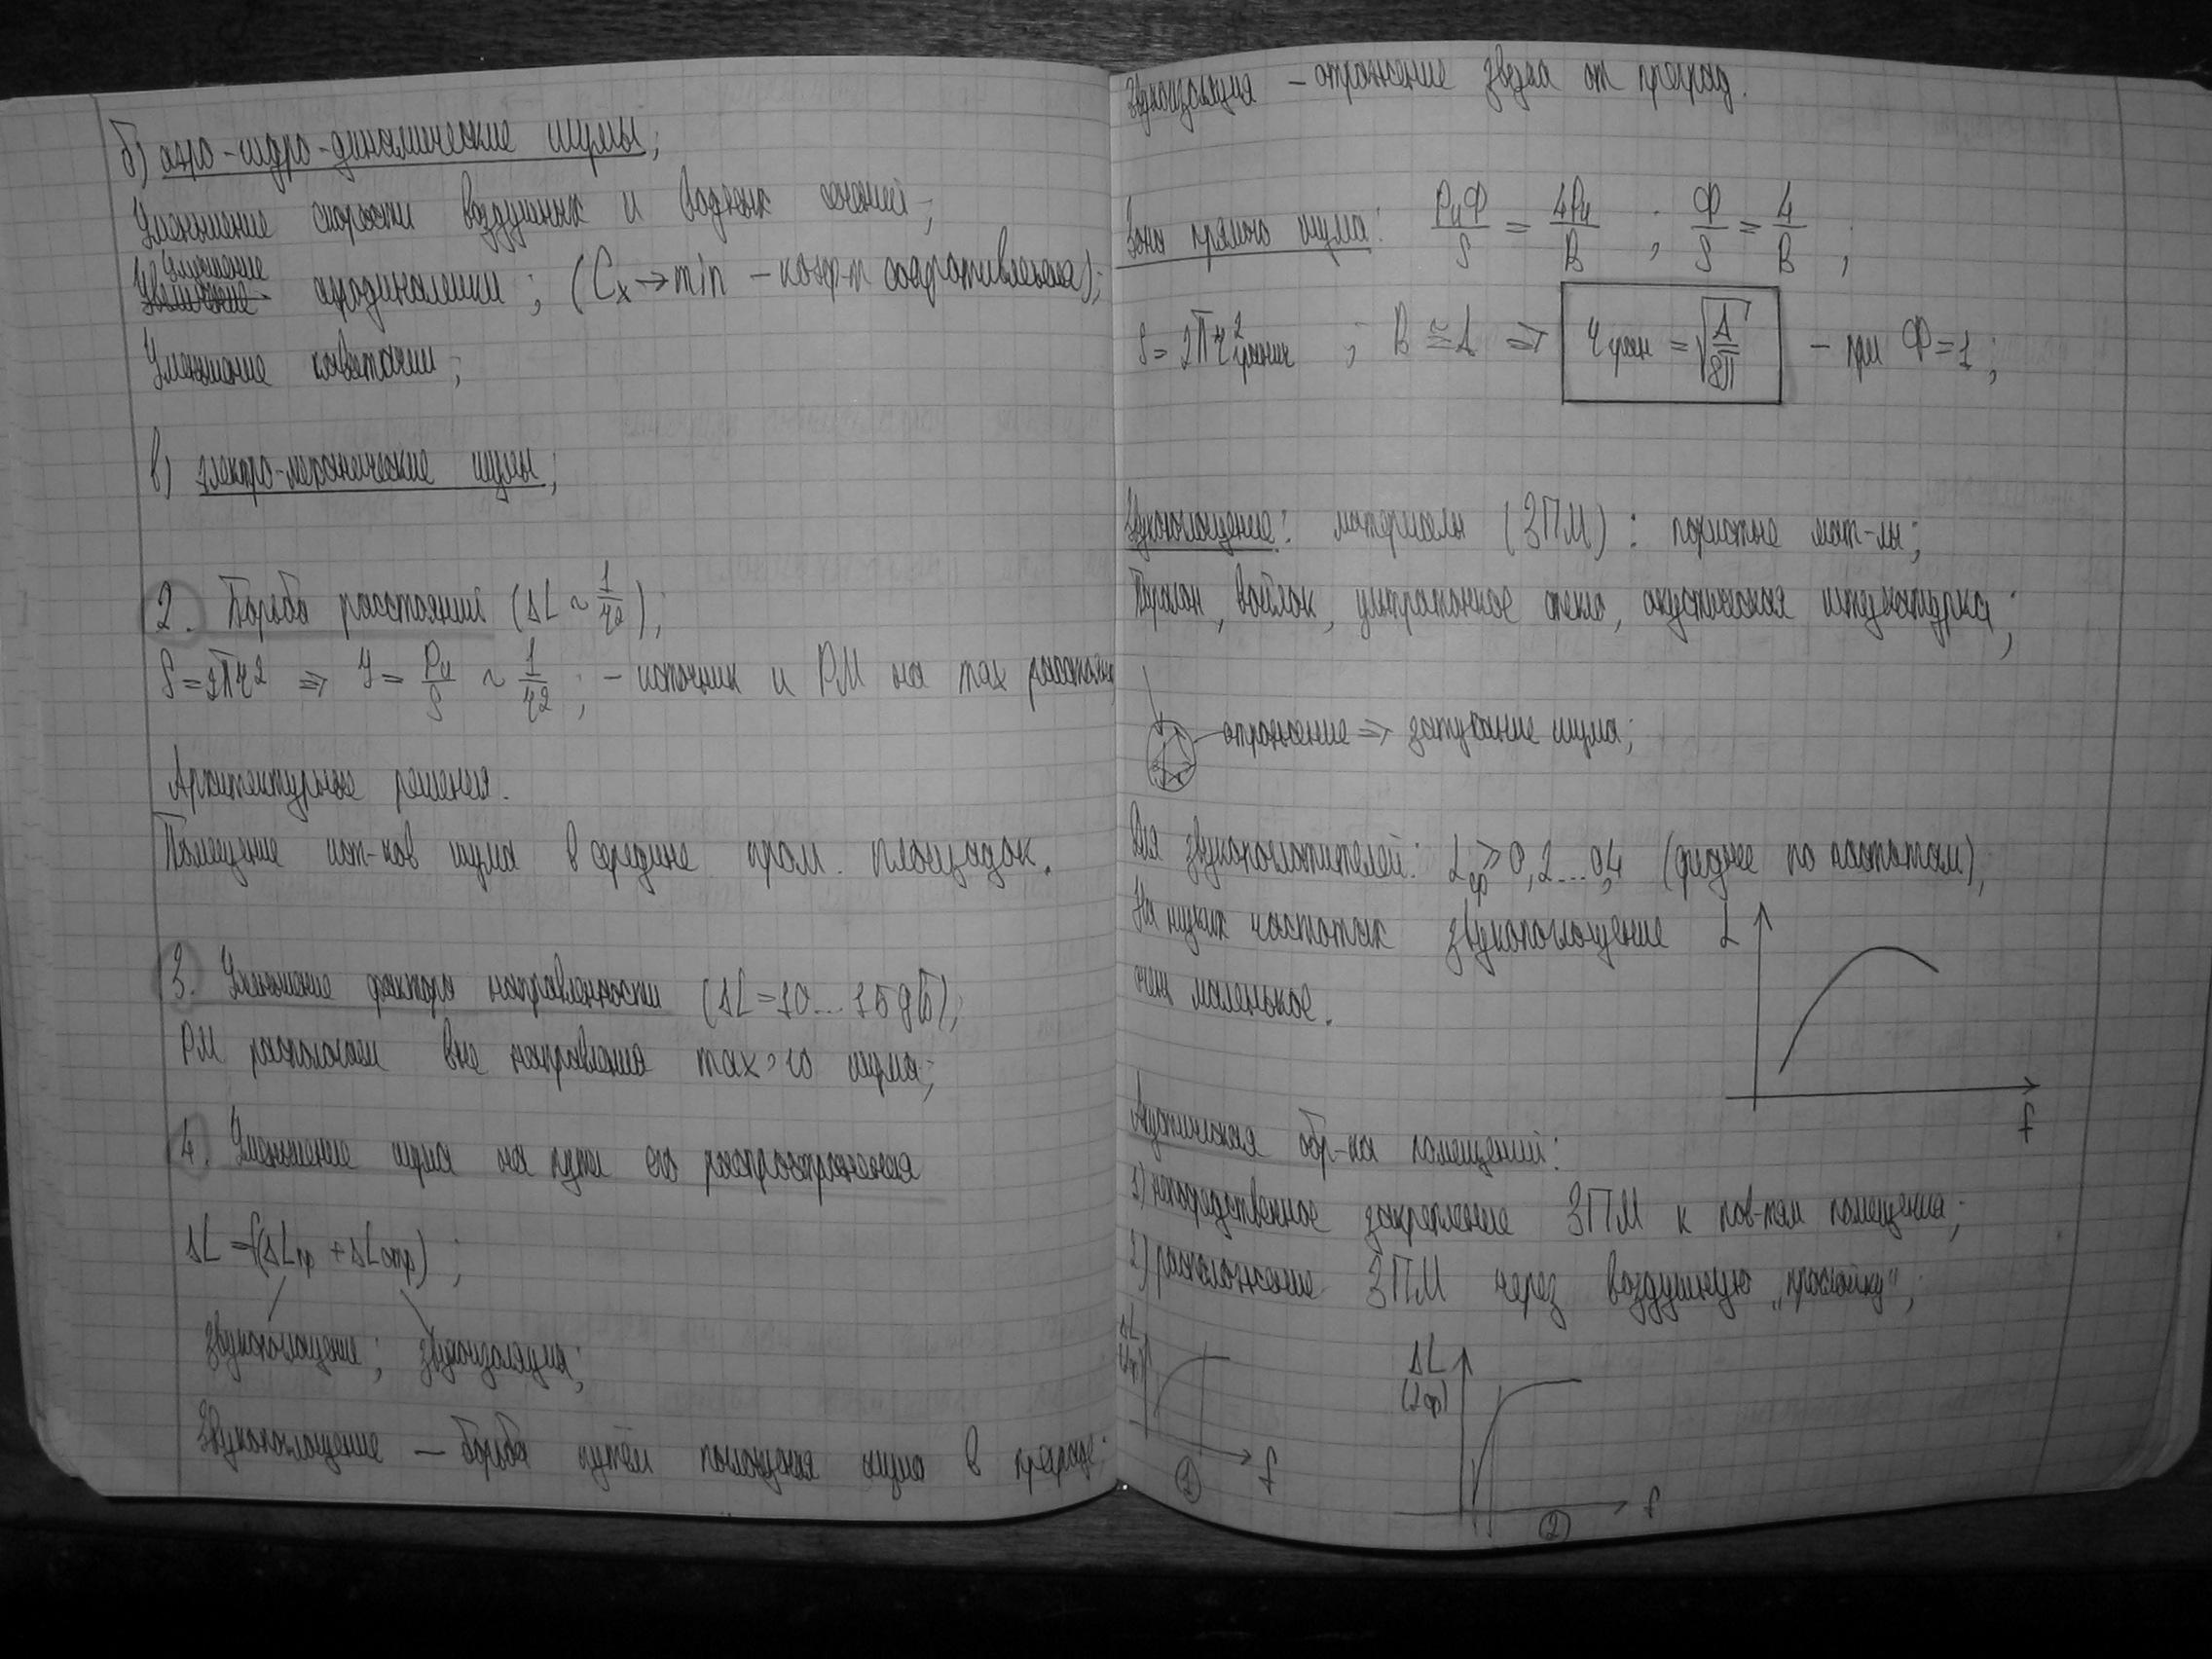 б) аэро-гидро-динамические шумы;
Уменьшение скорости воздушных и водных течений;
Улучшение
аэродинамики; (Cx → min – коэф-т сопротивления);
Уменьшение кавитации;
в) электро-механические шумы;
2. Борьба расстояний (ΔL ~ 1/r²);
S = 2πr² ⇒ Y = Pи/S ~ 1/r²; – источник и РМ на max расстоян
Архитектурные решения.
Помещение ист-ков шума в середине пром. площадок.
3. Уменьшение фактора направленности (ΔL = 10...15 дБ);
РМ располагаем вне направления max-го шума;
4. Уменьшение шума на пути его распространения
ΔL = f(ΔLпр + ΔLотр);
звукопоглощение; звукоизоляция;
Звукопоглощение – борьба путём поглощения шума в преграде;
Звукоизоляция – отражение звука от преград.
Зона прямого шума: PиФ/S = 4Pи/B ; Ф/S = 4/B ;
S = 2πr²гранич ; B ≅ A ⇒ rгран = √(A/8π) – при Ф = 1;
Звукопоглощение: материалы (ЗПМ): пористые мат-лы;
Поролон, войлок, ультратонкое стекло, акустическая штукатурка;
отражение ⇒ затухание шума;
Для звукопоглотителей: αср ≥ 0,2...0,4 (среднее по частотам);
На низких частотах звукопоглощение α
очень маленькое.
f
Акустическая обр-ка помещений:
1) непосредственное закрепление ЗПМ к пов-тям помещения;
2) расположение ЗПМ через воздушную „прослойку";
ΔL
(αср)
f
1
ΔL
(αср)
f
2